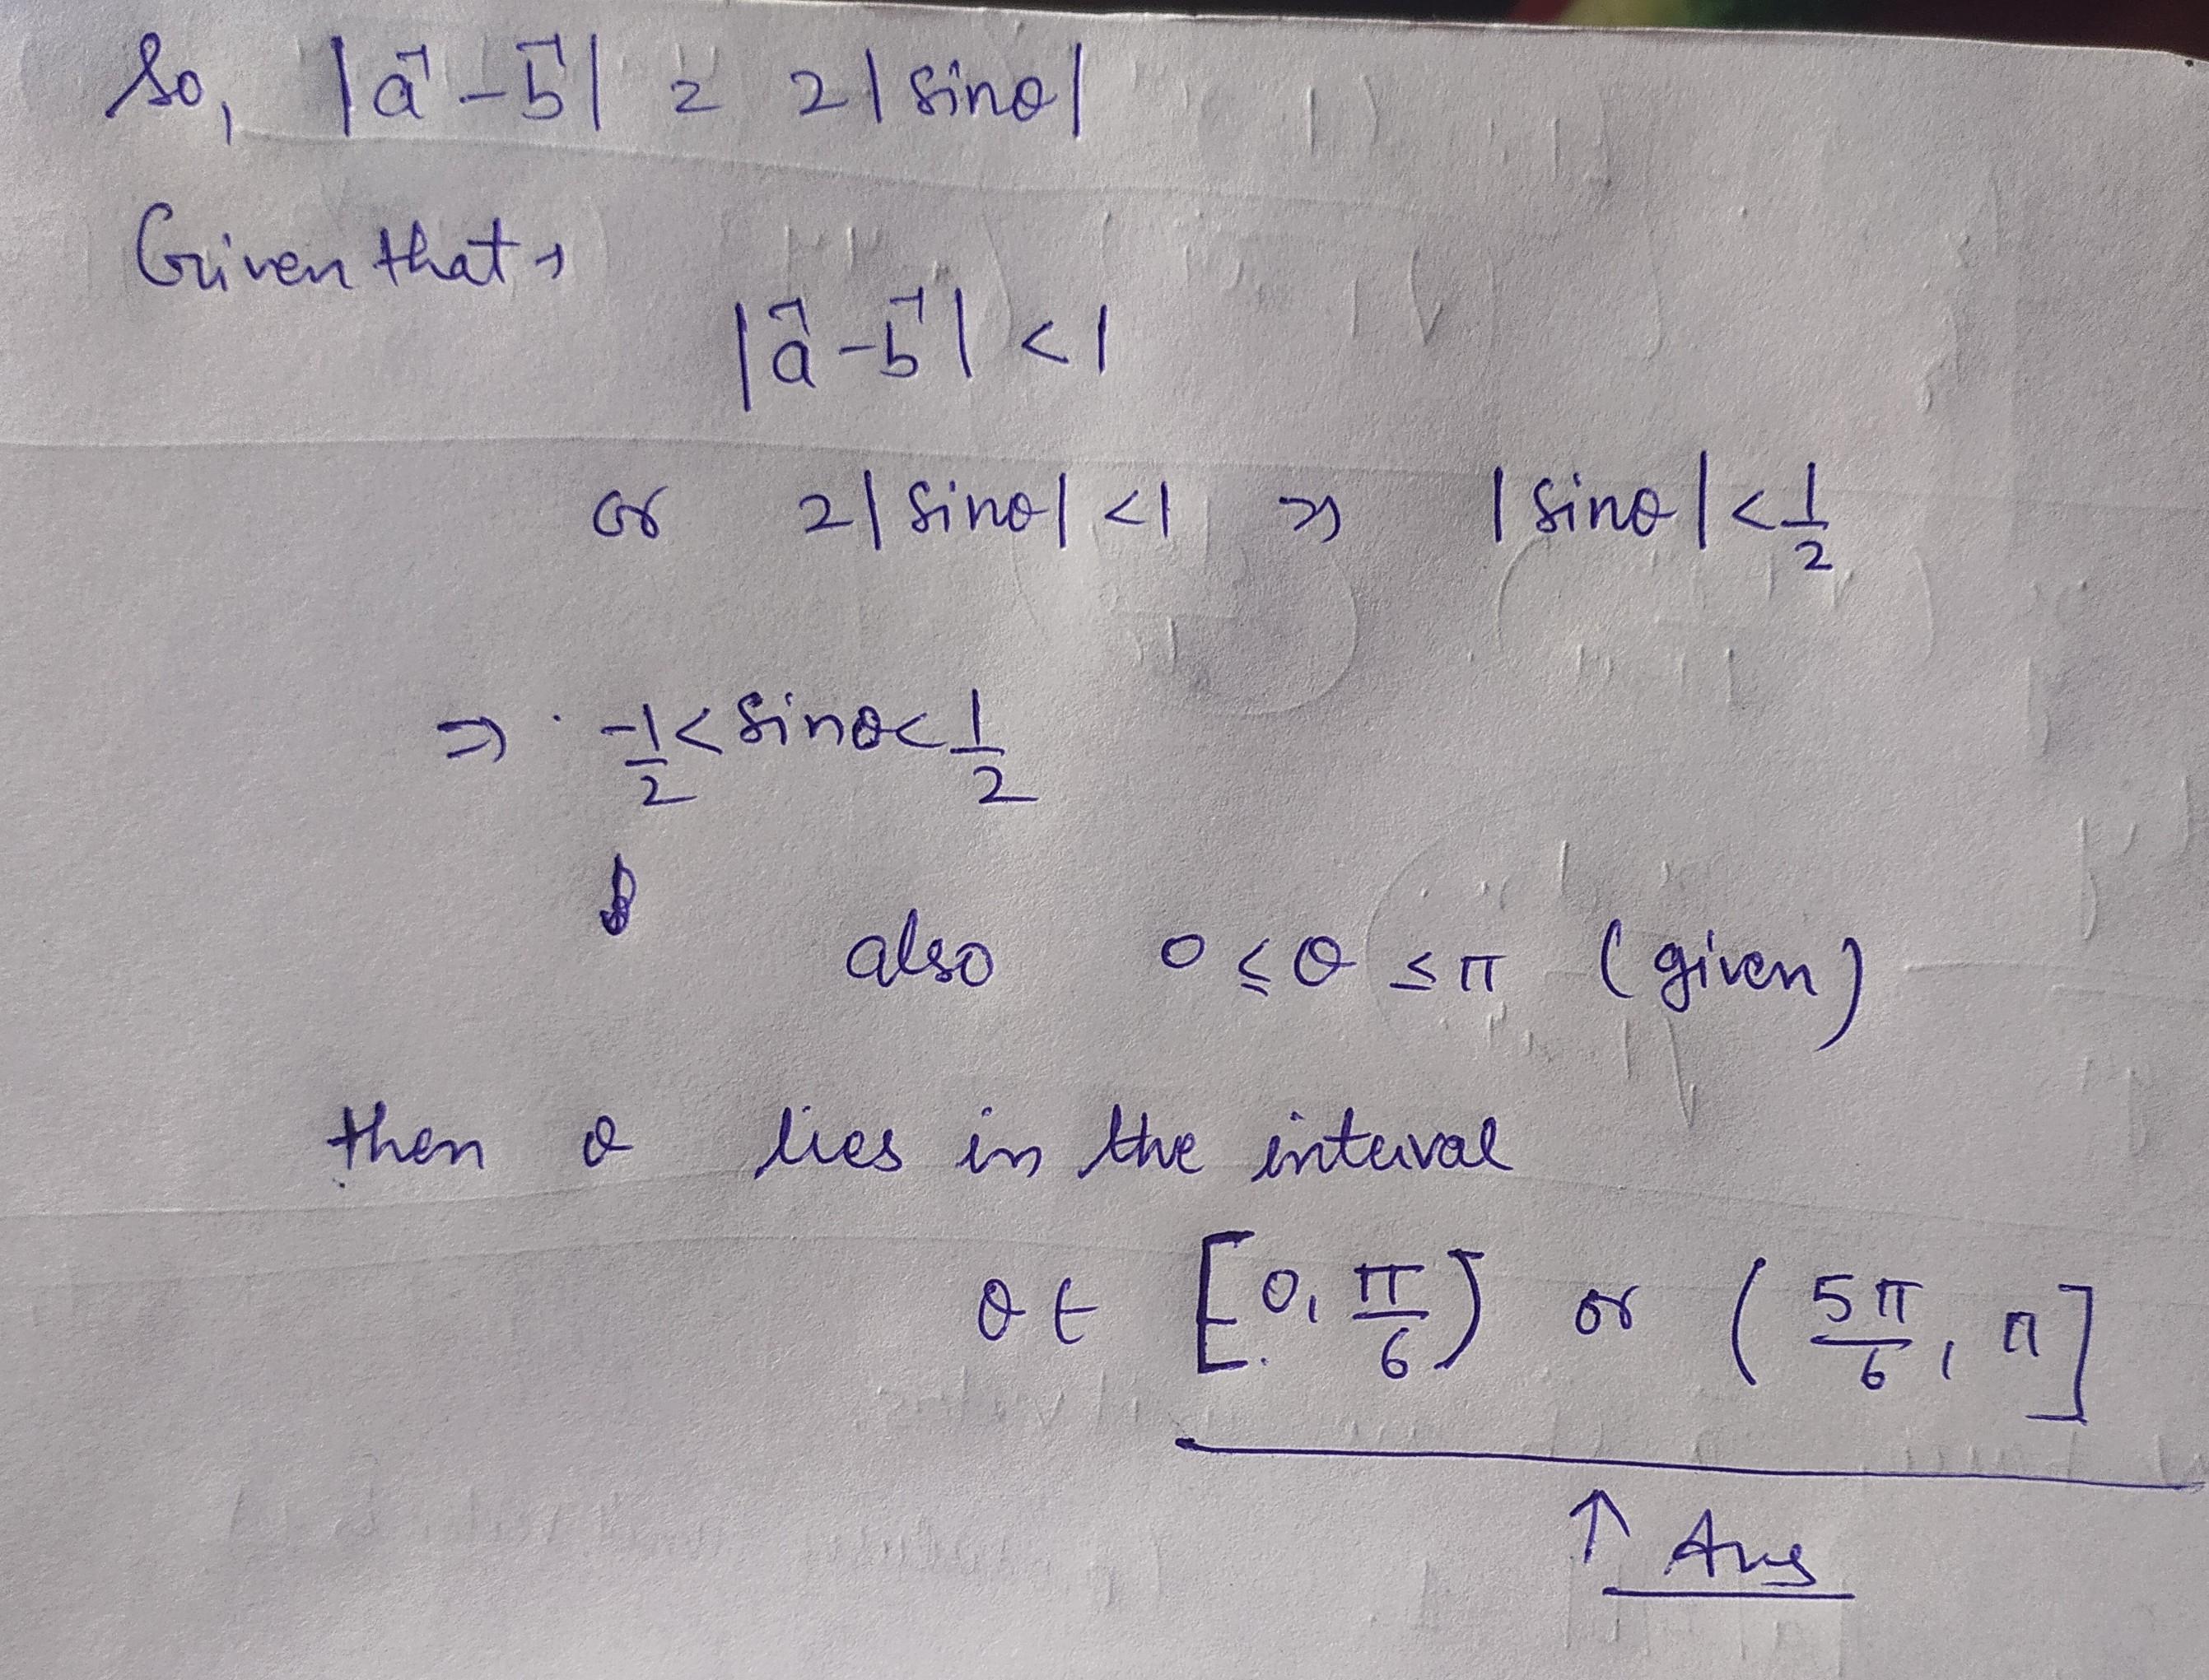 So, |a⃗ - b⃗| = 2|sinθ|
Given that →
|a⃗ - b⃗| < 1
or 2|sinθ| < 1 ⇒ |sinθ| < 1/2
⇒ -1/2 < sinθ < 1/2
also 0 ≤ θ ≤ π (given)
then θ lies in the interval
θ ∈ [0, π/6) or (5π/6, π]
↑ Ans